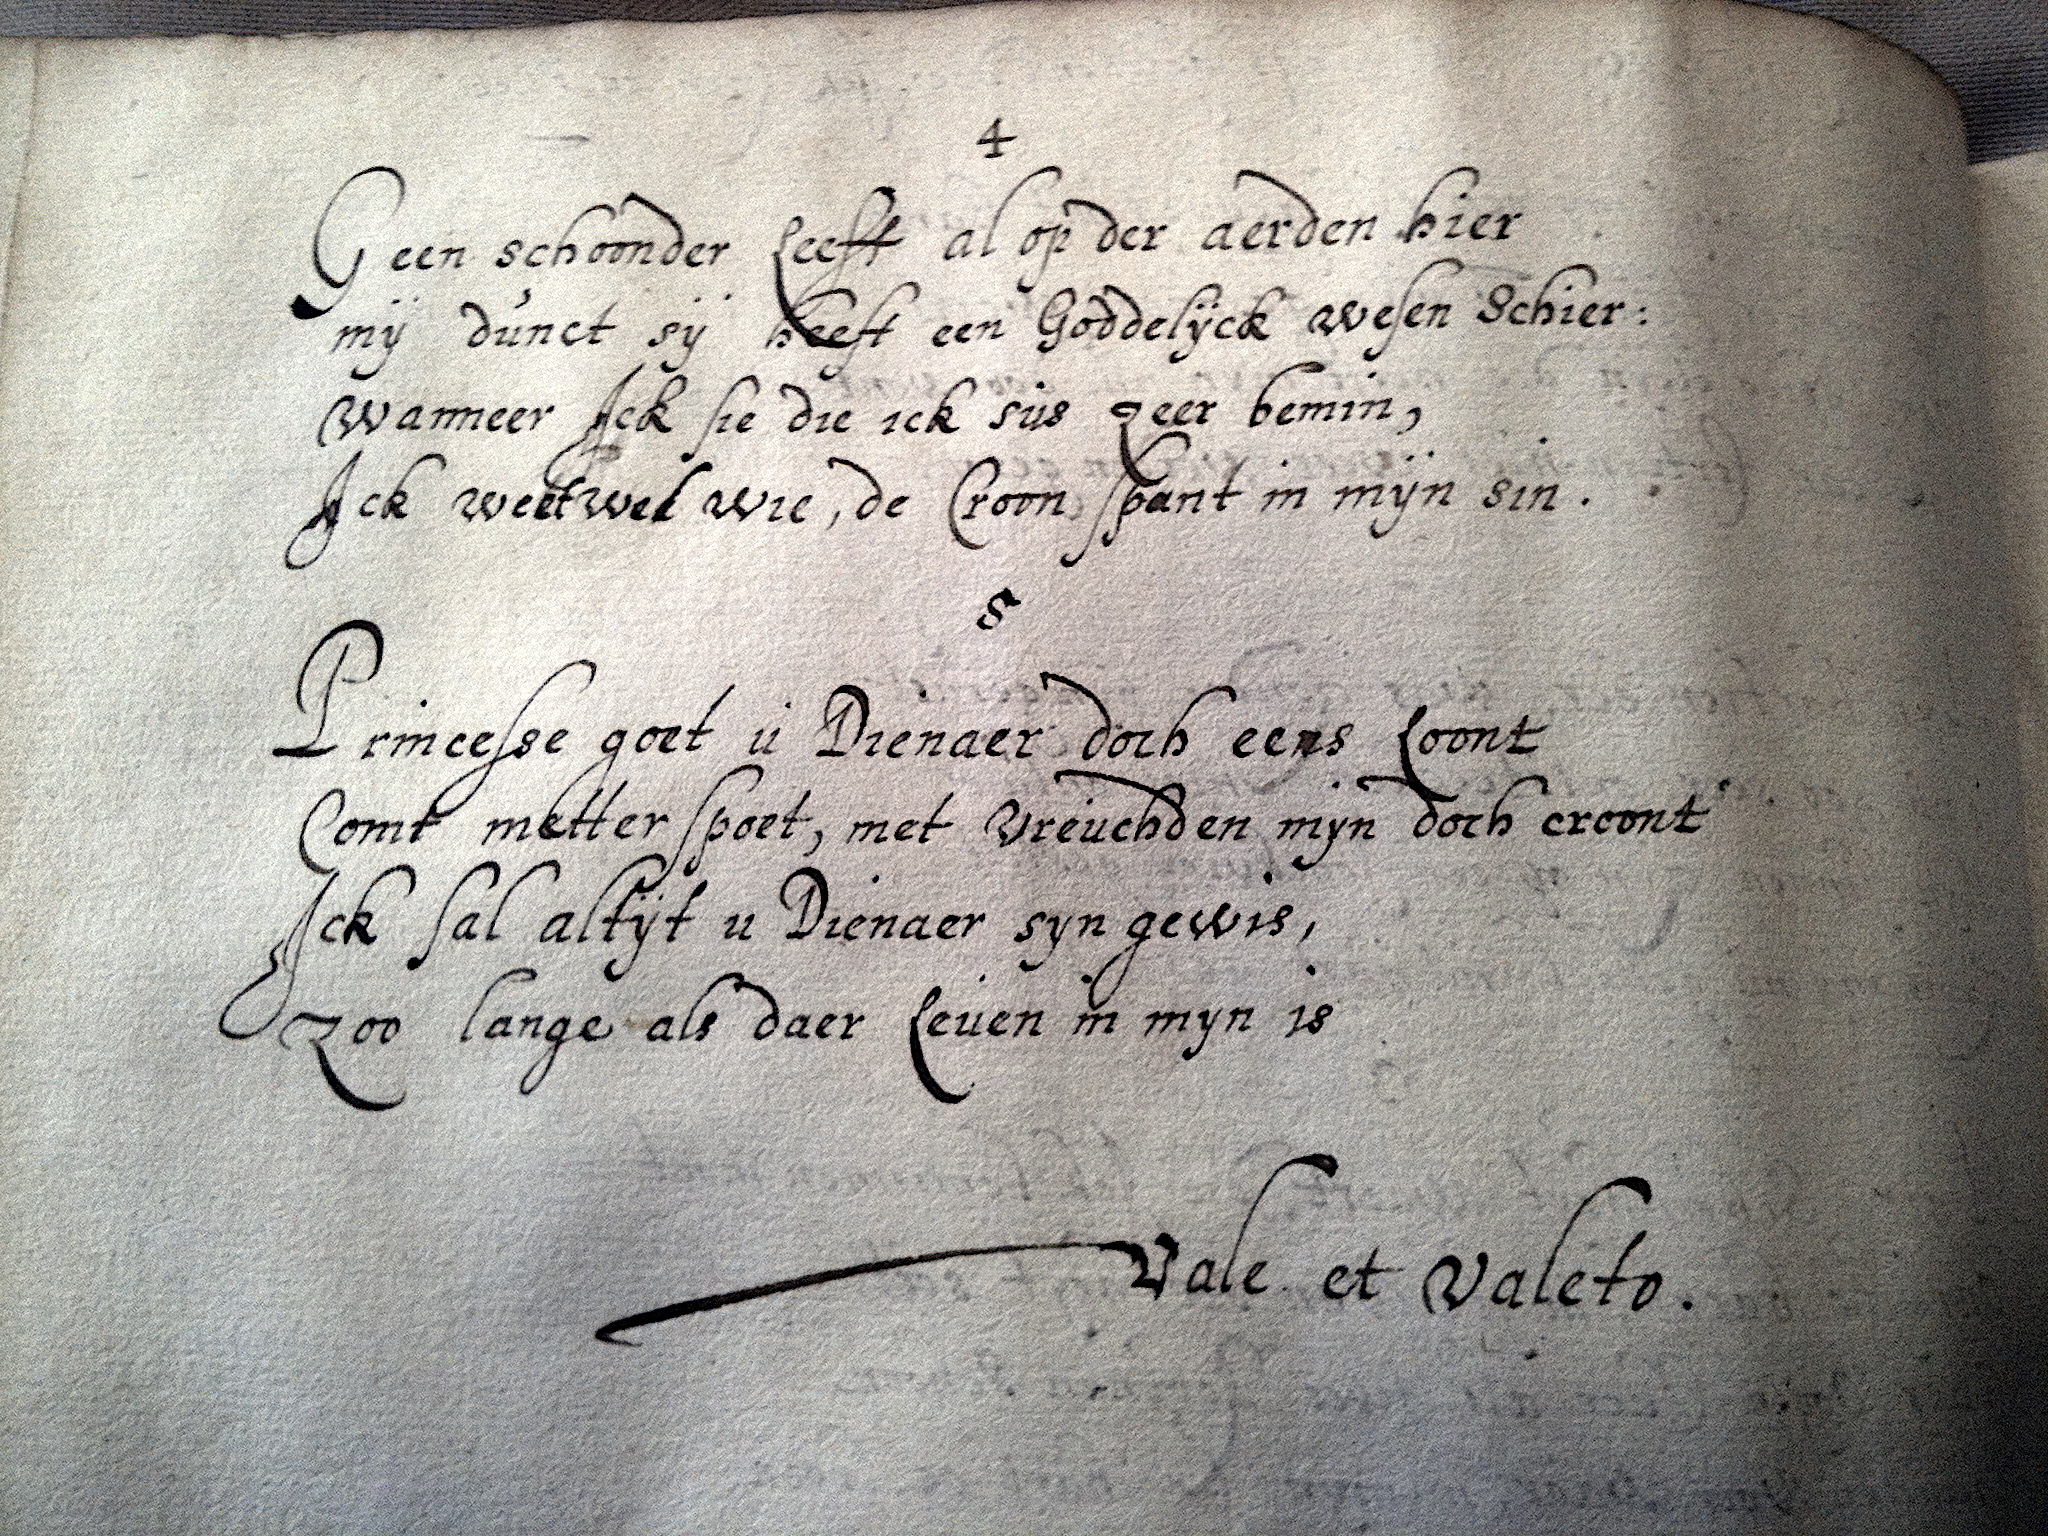 4
Geen schoonder Leeft al op der aerden hier
mij dunct sij heeft een Goddelijck wesen Schier:
Wanneer Ick sie die ick sus zeer bemin,
Ick weet wel wie, de Croon spant in mijn sin.
5
Princesse goet u Dienaer doch eens Loont
Comt metter spoet, met vreuchden myn doch croont
Ick sal altijt u Dienaer syn gewis,
Zoo lange als daer Leuen in myn is
Vale et Valeto.